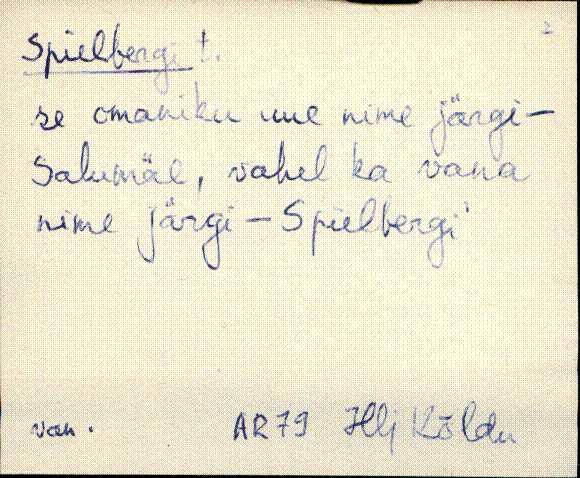 2
Spielbergi t.
se omaniku uue nime järgi –
Salumäe, vahel ka vana
nime järgi – Spielbergi
van. AR79 Hlj Kõldu